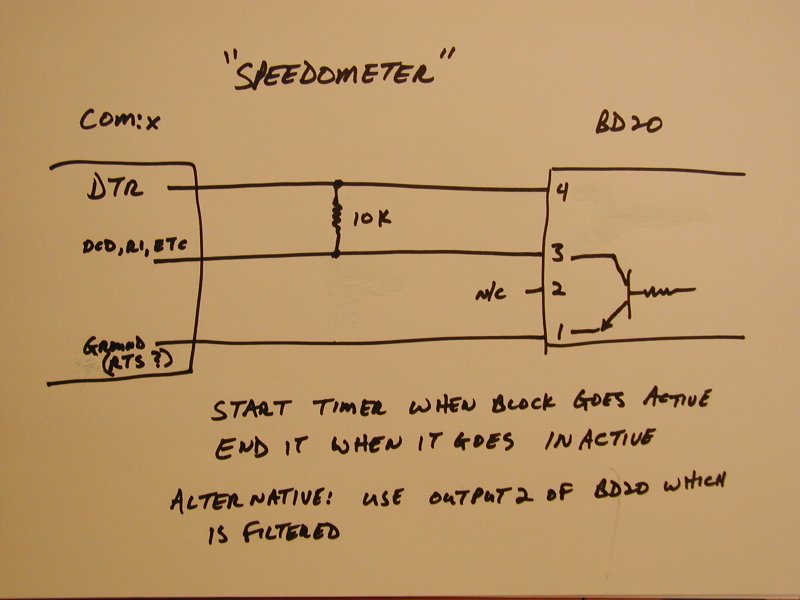 "SPEEDOMETER"
COM:X
BD20
DTR
4
10K
DCD, RI, ETC
3
N/C
2
GROUND
1
(RTS?)
START TIMER WHEN BLOCK GOES ACTIVE
END IT WHEN IT GOES INACTIVE
ALTERNATIVE: USE OUTPUT 2 OF BD20 WHICH
IS FILTERED